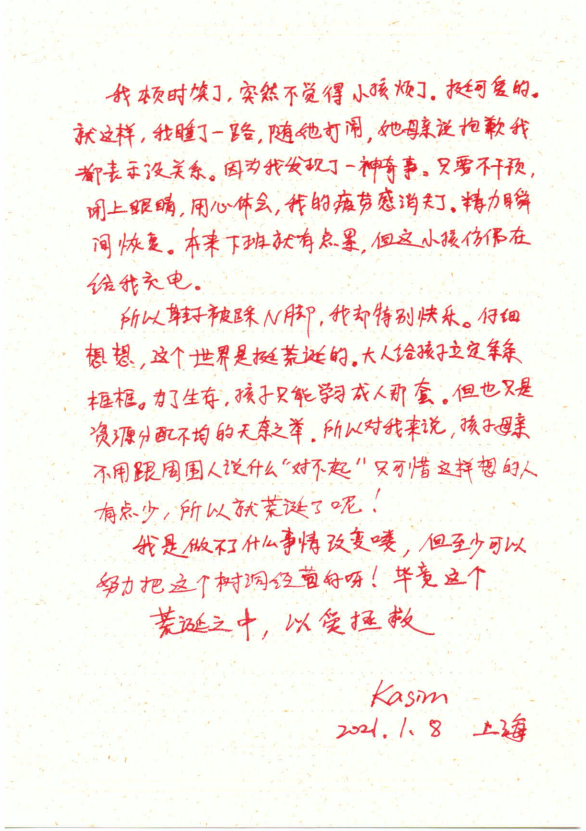 我顿时笑了，突然不觉得小孩烦了。挺可爱的。
就这样，我睡了一路，随她打闹，她母亲说抱歉我
都表示没关系。因为我发现了一神奇事。只要不干预，
闭上眼睛，用心体会，我的疲劳感消失了。精力瞬
间恢复。本来下班就有点累，但这小孩仿佛在
给我充电。
所以鞋子被踩N脚，我却特别快乐。仔细
想想，这个世界是挺荒诞的。大人给孩子立定条条
框框。为了生存，孩子只能学习成人那套。但也只是
资源分配不均的无奈之举。所以对我来说，孩子母亲
不用跟周围人说什么“对不起”只可惜这样想的人
有点少，所以就荒诞了呢！
我是做不了什么事情改变喽，但至少可以
努力把这个树洞经营好呀！毕竟这个
荒诞之中，以爱拯救
Kasim
2021.1.8 上海